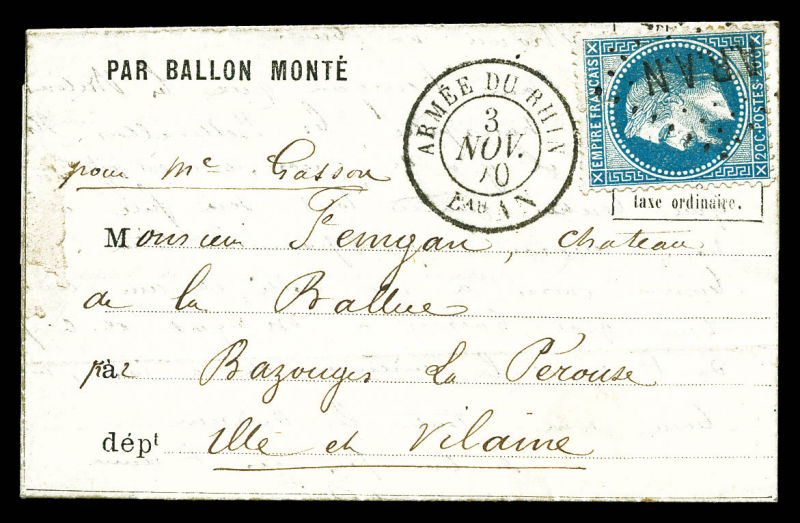 PAR BALLON MONTÉ
ARMÉE DU RHIN
3
NOV.
70
Bau AN
EMPIRE FRANÇAIS
20 C·POSTES·20 C
A.R.A.N
taxe ordinaire.
pour Mc Gasson
Monsieur Femgan, chateau
de la Ballue
par à Bazouges La Pérouse
dépt Ille et Vilaine